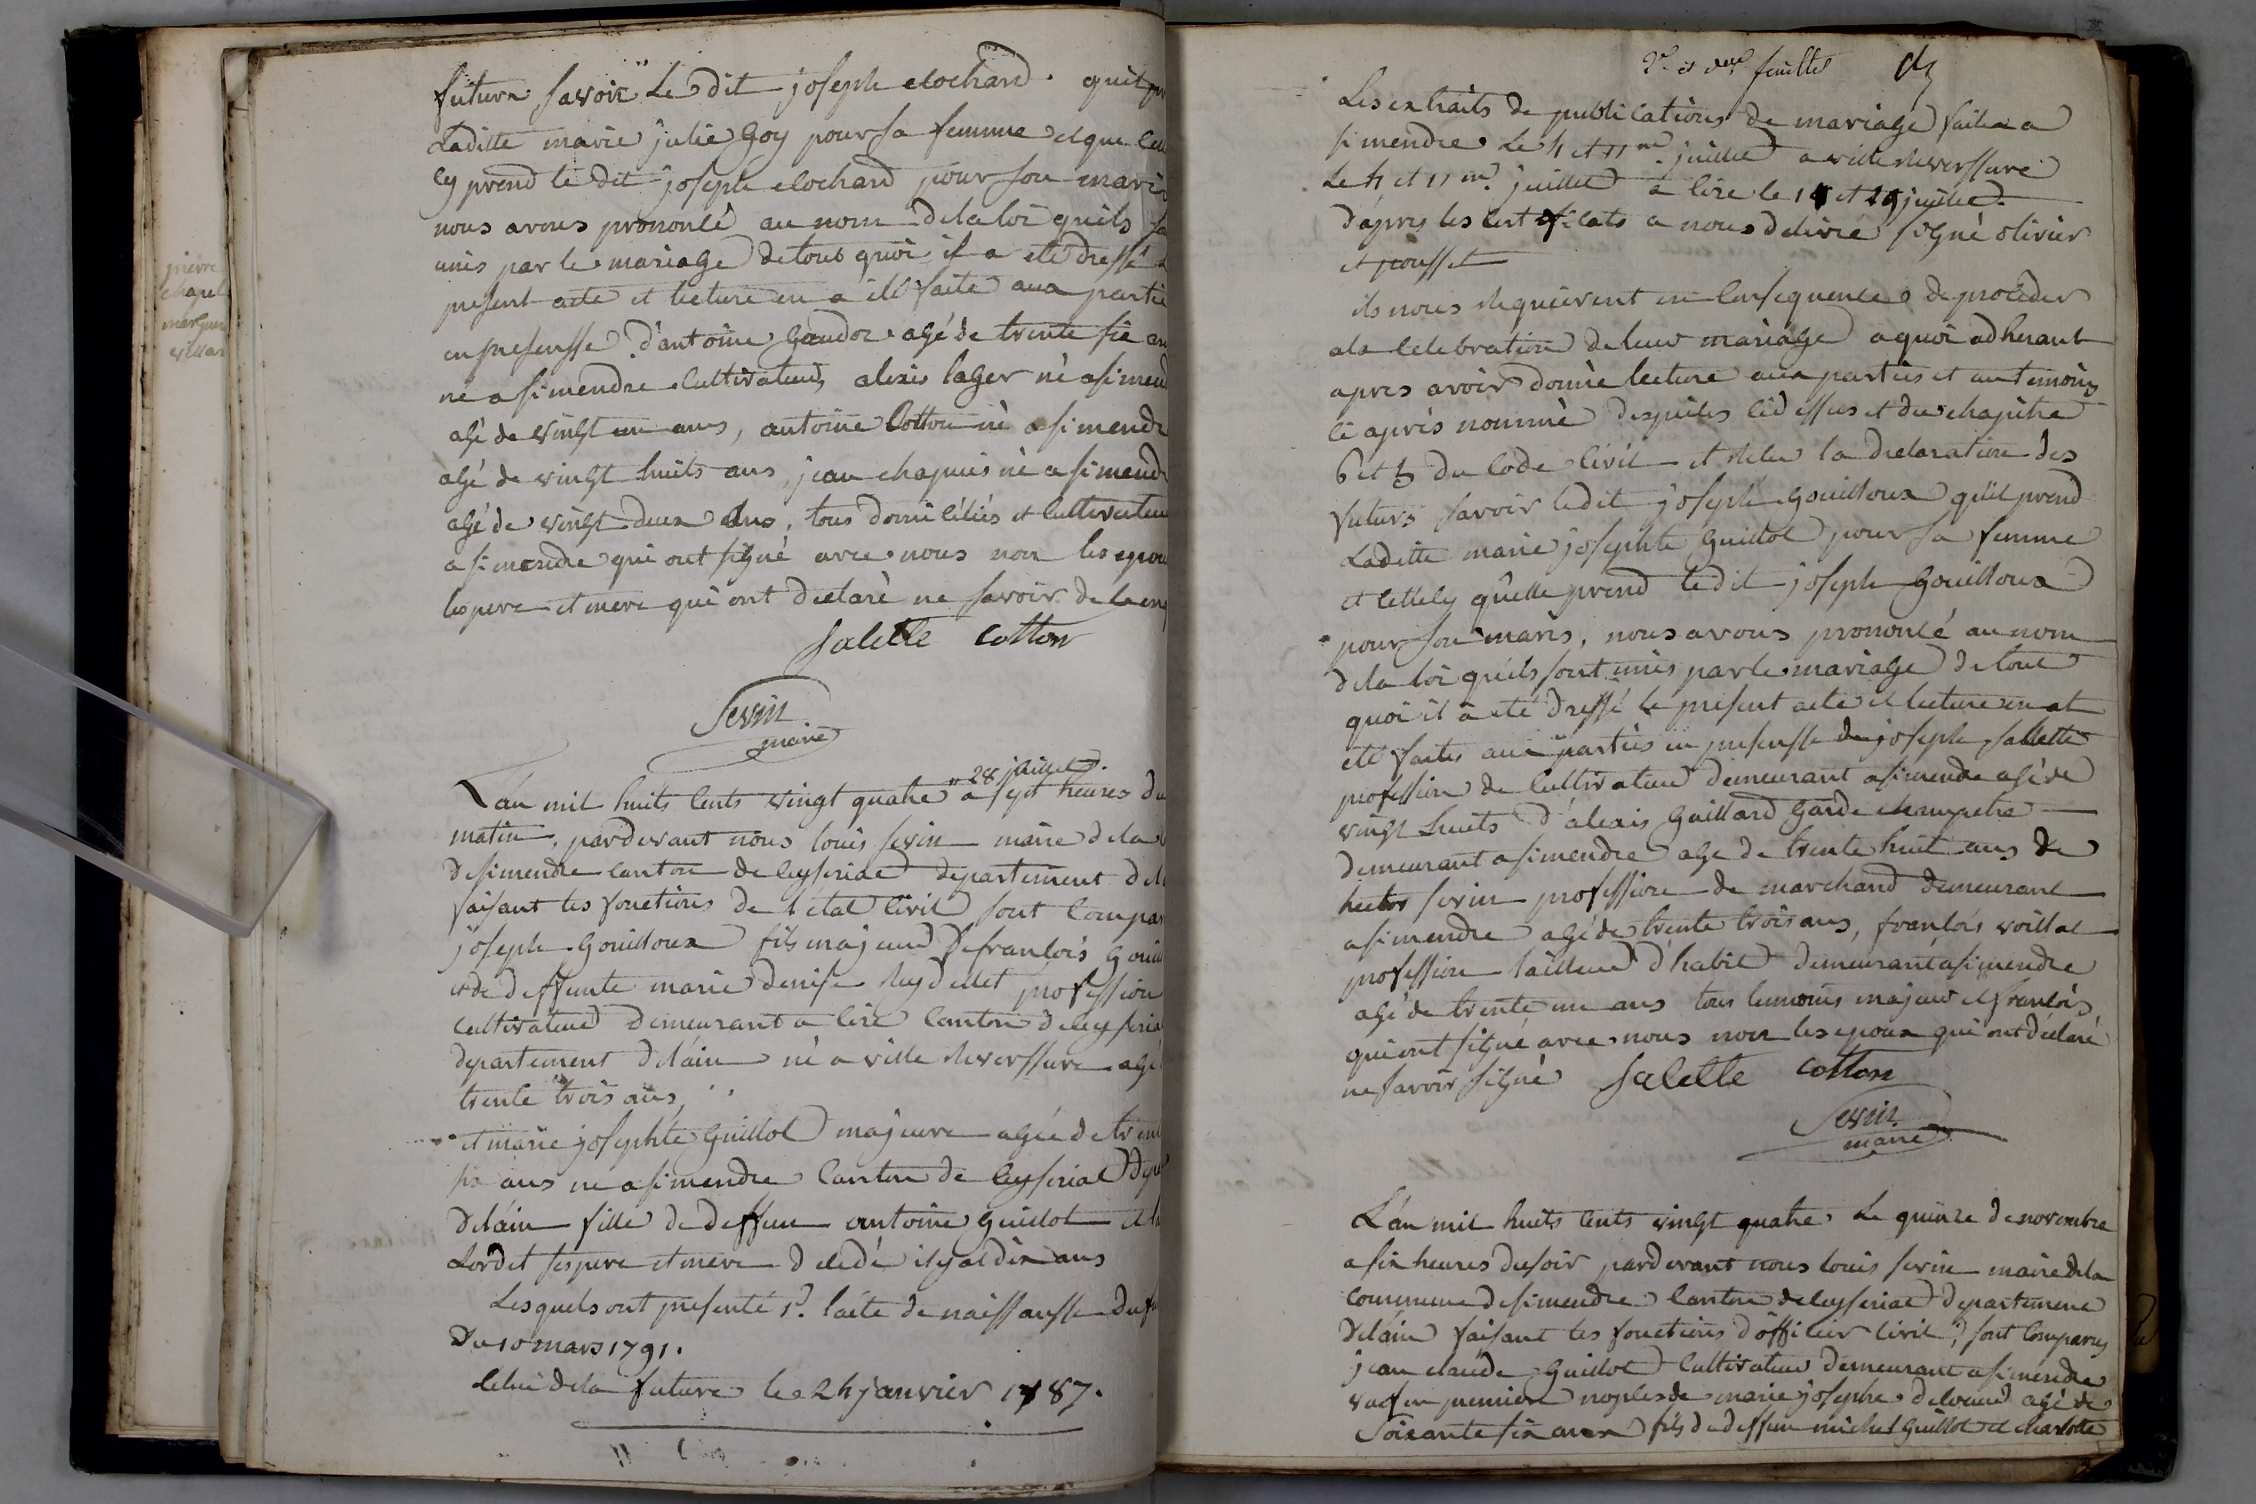 futurs savoir le dit joseph clochard qu'il
Laditte marie julie Goy pour sa femme et que
cy prend le dit joseph clochard pour son mari
nous avons prononcé au nom de la loi quils
unis par le mariage de tout quoi il a eté dressé
present acte et lecture en a été faite aux partie
en presensse d'antoine Gaudoz agé de trente six
né a simendre cultivateur, alexis lager né a simend
agé de vingt un ans, antoine Cotton né a simendr
agé de vingt huits ans, jean chapuis né a simend
agé de vingt deux ans, tous domiciliés et Cultivateur
a simendre qui ont signé avec nous non les epou
les pere et mere qui ont declaré ne savoir de le
Salette Cotton
Sevin
maire
28 juillet.
L'an mil huits cents vingt quatre a sept heures du
matin, pardevant nous louis sevin maire de la
de simendre canton de ceyseriat departement de l
faisant les fonctions de l'état Civil sont compar
joseph Gouilloux fils majeur de francois Goui
et de deffunte marie denise Reydellet profession
cultivateur demeurant a cize canton de ceyseria
departement de l'ain né a ville Reverssure agé
trente trois ans,
et marie josephte Guillot majeure agée de tren
six ans né a simendre Canton de ceyseriat dep
de l'ain fille de deffun antoine Guillot et
Lordet ses pere et mere decedé il y a dix ans
Lesquels ont presenté 1º l'acte de naissansse du
du 10 mars 1791.
Celui de la future le 24 janvier 1787.
pierre
chapel
margue
vilar
feuillet
Les extraits de publications de mariage faites a
simendre Le 4 et 11me juillet a ville Reverssure
Le 4 et 11 m. juillet a Cize le 18 et 19 juillet
d'apres les certificats a nous delivré signé olivier
et pousset
ils nous Requierent en Consequence de proceder
a la celebration de leur mariage a quoi adherant
apres avoir donné lecture aux parties et au temoins
ci après nommé des pieces ci dessus et du chapitre
6 et 5 du Code Civil et Recu la declaration des
futurs savoir ledit joseph gouilloux qu'il prend
Laditte marie josephte Guillot pour sa femme
et cellecy qu'elle prend ledit joseph Gouilloux
pour son maris, nous avons prononcé au nom
de la loi quils sont unis par le mariage de tout
quoi il a eté dressé le present acte et lecture en at
eté faites aux parties en presensse de joseph Sallette
profession de Cultivateur demeurant a simendre agé de
vingt huits d'alexis Gaillard Garde champetre
demeurant a simendre agé de trente huit ans de
hector sevin profession de marchand demeurant
a simendre agé de trente trois ans, francois voillat
profession tailleur d'habit demeurant a simendre
agé de trente un ans tous temoins majeur et francois
qui ont signé avec nous non les epoux qui ont déclaré
ne savoir signé Salette Cotton
Sevin
maire
L'an mil huits cents vingt quatre Le quinze de novembre
a six heures du soir pardevant nous louis sevin maire de la
commune de simendre Canton de ceyseriat departement
de l'ain faisant les fonctions d'officier Civil, sont Comparus
jean claude Guillot Cultivateur demeurant a simendre
en premiere de marie josephe agé de
soixante six ans fils de deffun michel Guillot et charlotte